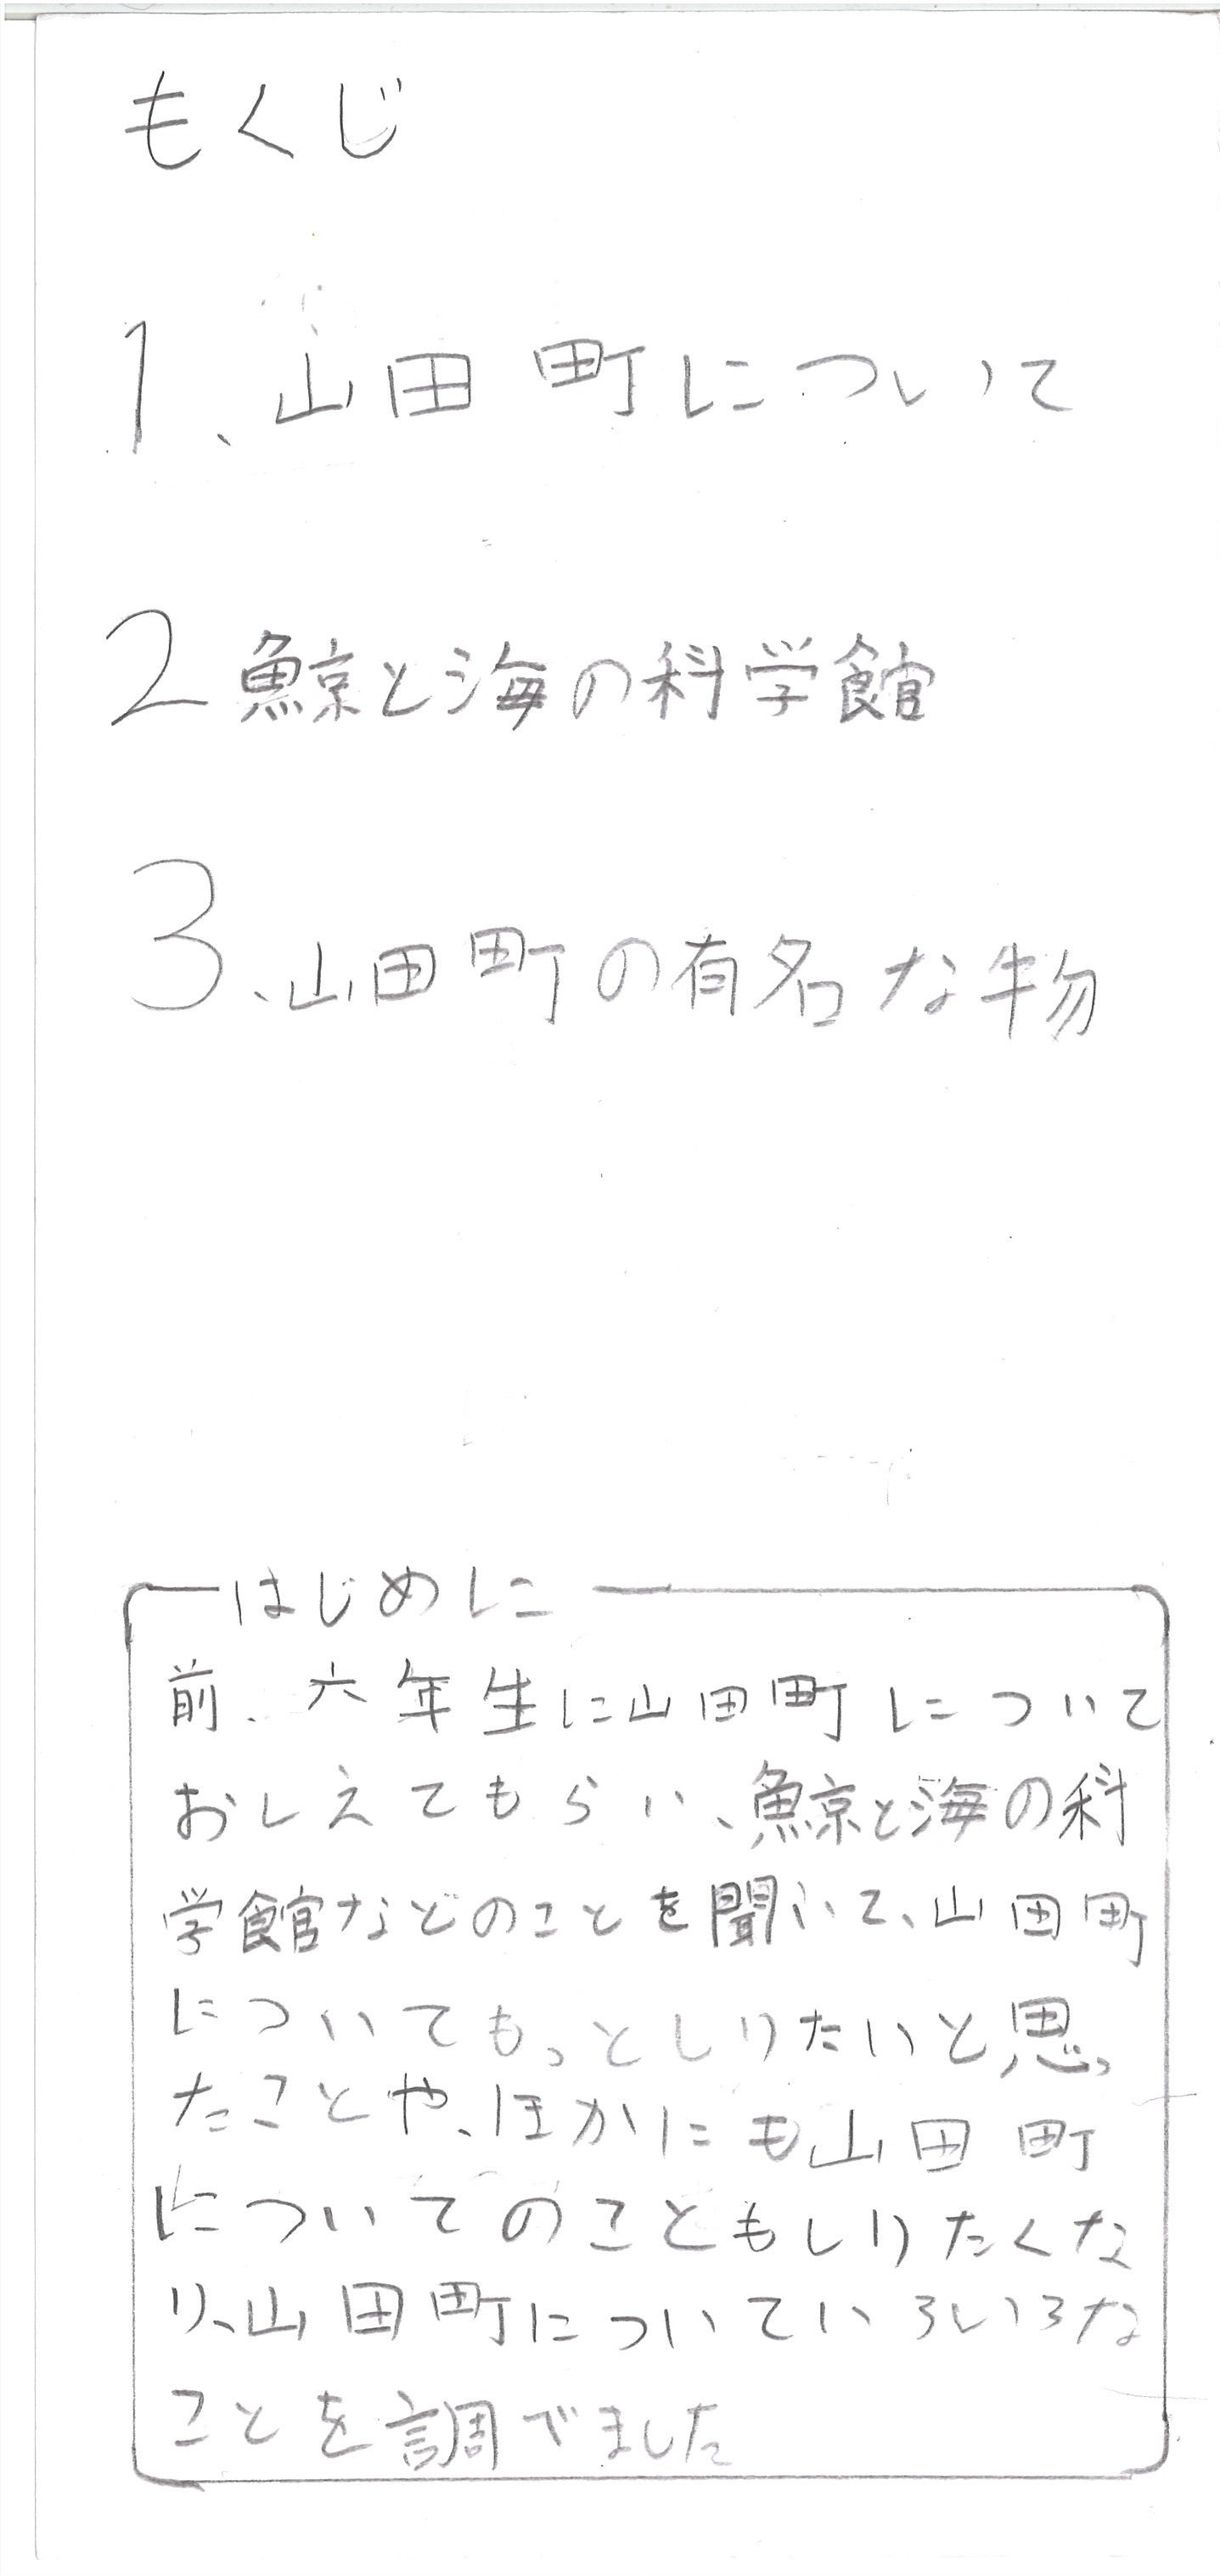 もくじ
1、山田町について
2 鯨と海の科学館
3、山田町の有名な物
はじめに
前、六年生に山田町について
おしえてもらい、鯨と海の科
学館などのことを聞いて、山田町
についてもっとしりたいと思っ
たことや、ほかにも山田町
についてのこともしりたくな
り、山田町についていろいろな
ことを調べました